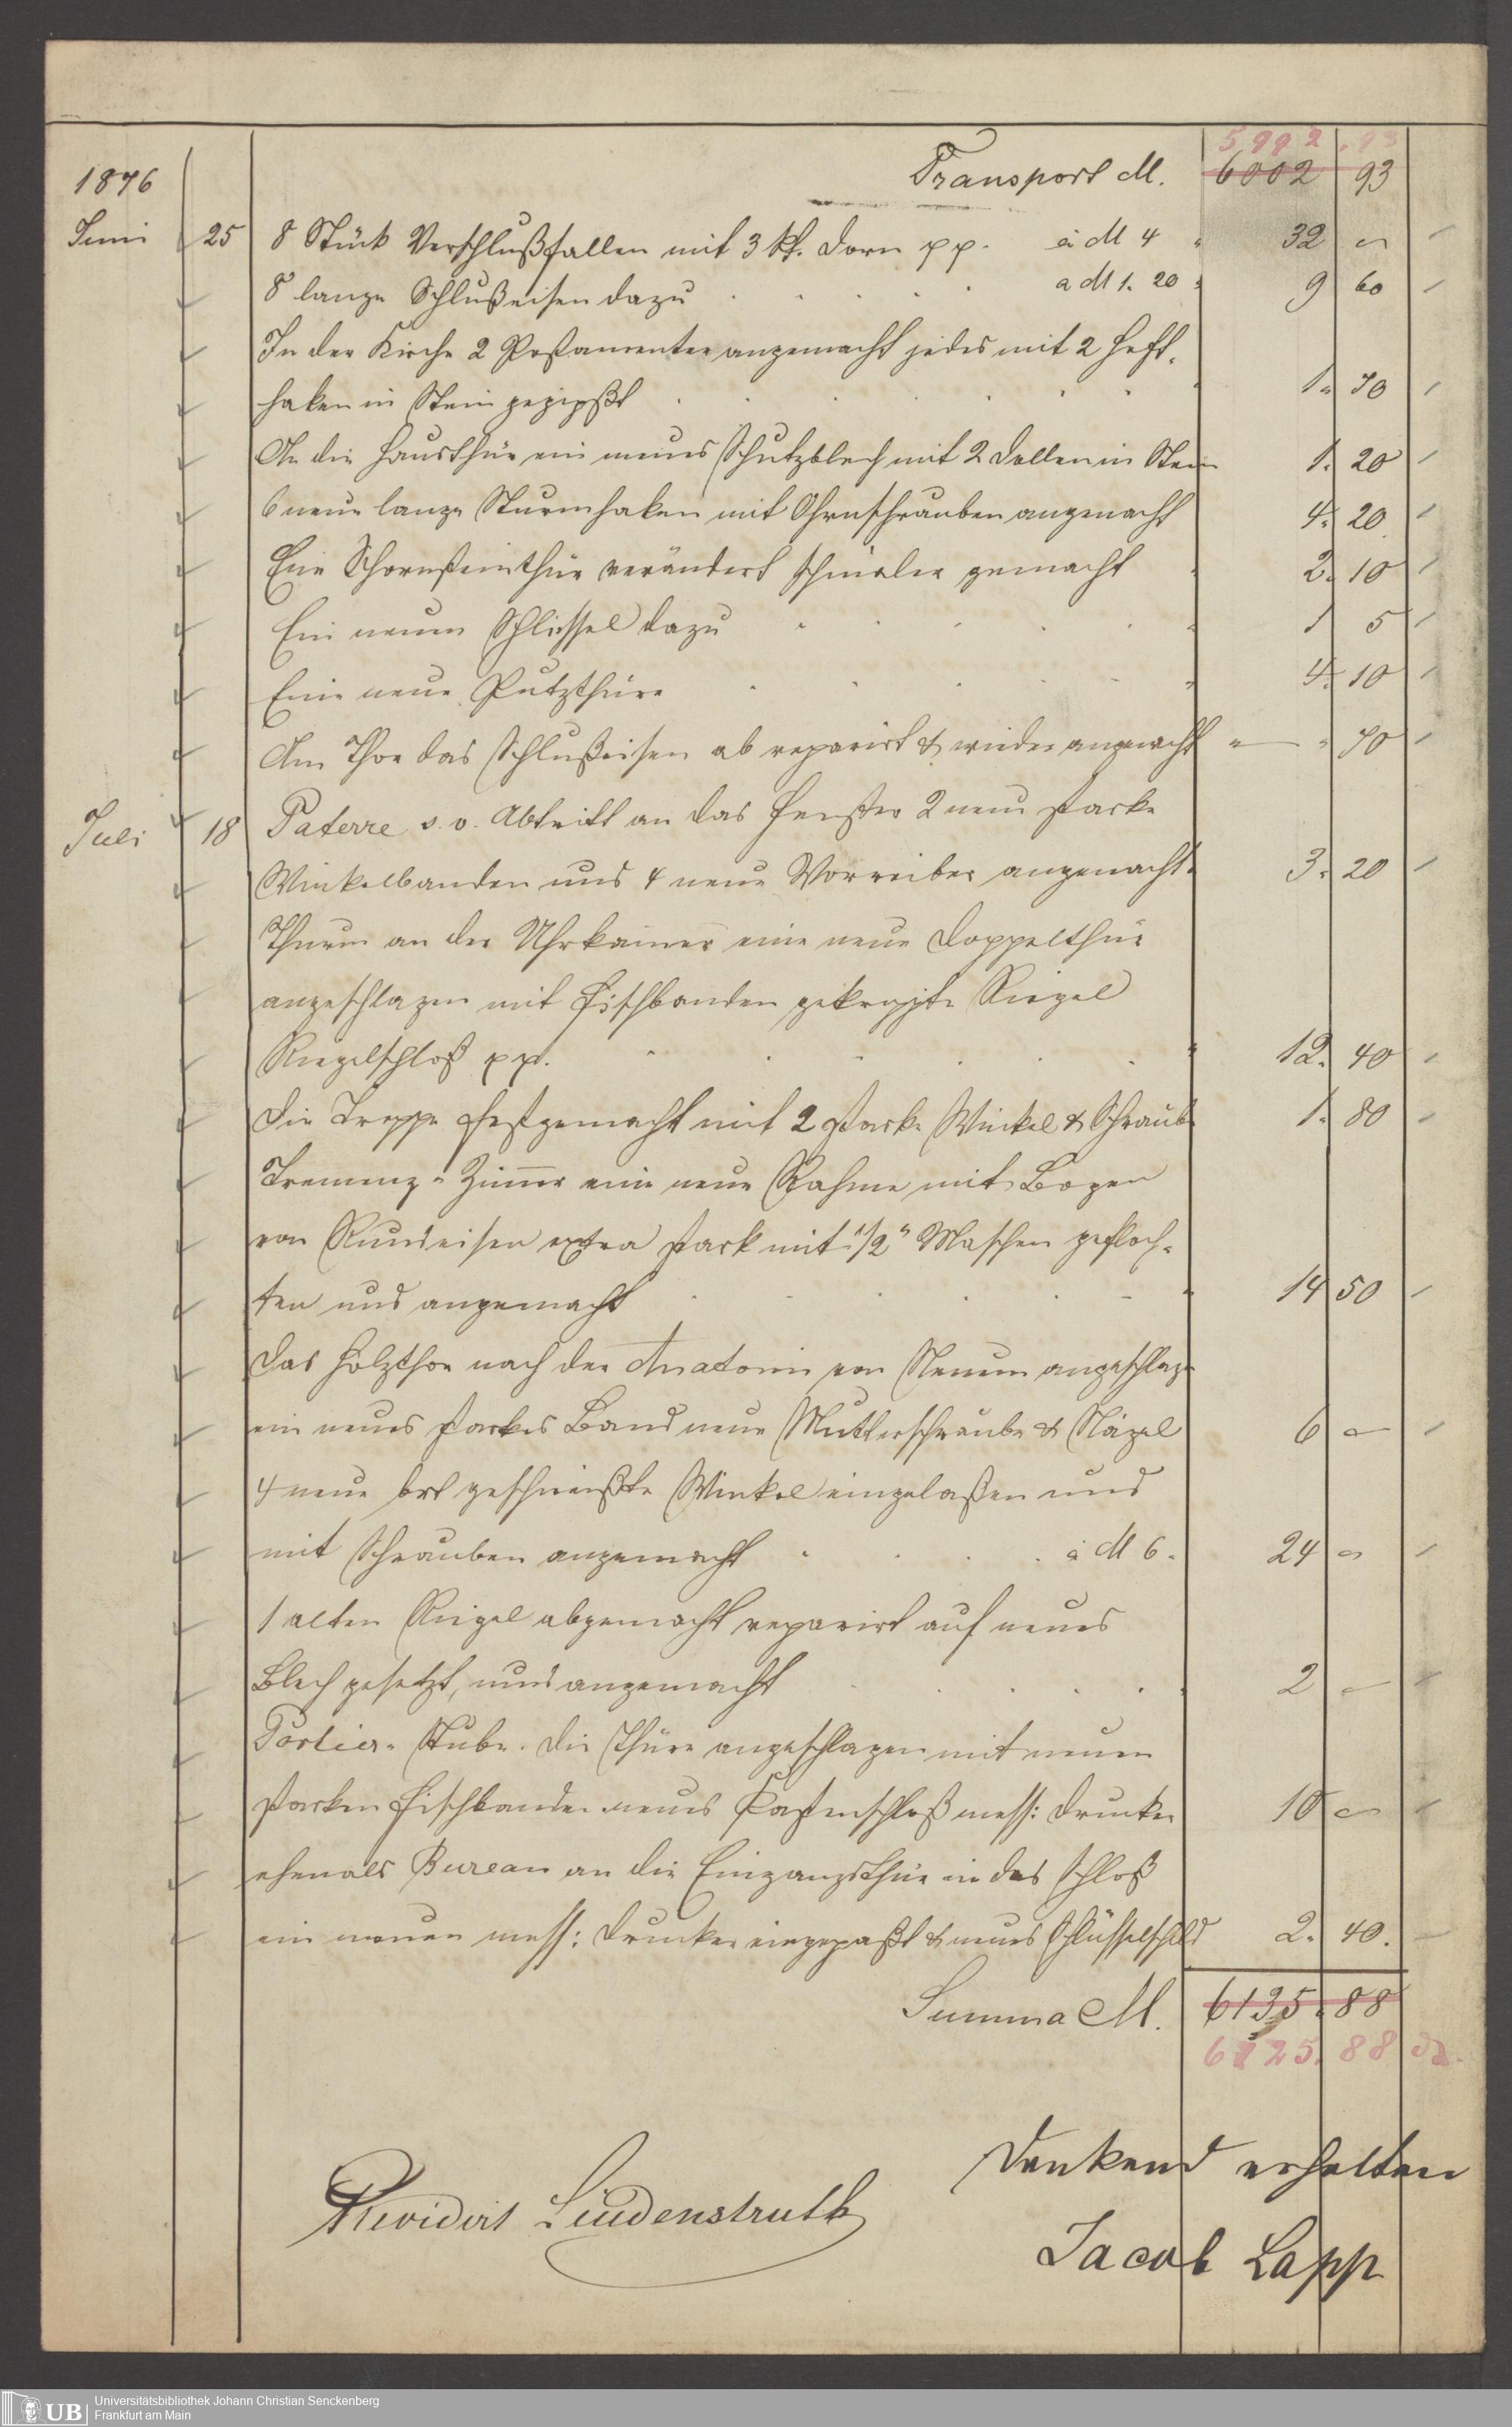 5992.93
Transport M. 6002 93
1876
Juni 25 8 Stück Verschlußfallen mit 3 kt. Dorn pp. à M 4 " 32 —
8 lange Schlußeisen dazu a M 1. 20 " 9 60
In der Kirche 2 Postamenter angemacht jedes mit 2 Heft-
haken in Stein gegipßt 1. 70
An die Hausthür ein neues Schutzblech mit 2 Dollen in Stein 1. 20
6 neue lange Sturmhaken mit Ohrschrauben angemacht 4. 20
Eine Schornsteinthür verändert schmäler gemacht 2. 10
Ein neuen Schlissel dazu 1 5
Eine neue Putzthüre 4. 10
Am Thor das Schlußeisen ab reparirt & wieder angemacht " — " 70
Juli 18 Paterre s. v. Abtritt an das Fenster 2 neue starke
Winkelbanden und 4 neue Vorreiber angemacht 3. 20
Thurm an der Uhrkamer eine neue Doppelthür
angeschlagen mit Fischbanden gekropfte Riegel
Riegelschloß pp. 12. 40
Die Treppe festgemacht mit 2 starke Winkel & Schraub 1. 80
Zimmer eine neue Rahme mit Bogen
von Rundeisen extra stark mit 1/2" Maschen gefloch-
ten und angemacht 14 50
Das Holzthor nach der Anatomie von Neuem angeschlage
ein neues starkes Band neue Mutterschraube & Nägel 6 —
4 neue geschweißte Winkel eingelaßen und
mit Schrauben angemacht à M 6. 24 —
1 alten Riegel abgemacht reparirt auf neues
Blech gesetzt, und angemacht 2 —
Portier-Stube. Die Thüre angeschlagen mit neuen
starken Fischbanden neues Kastenschloß mess: Drucker 10 —
ehemals Bureau an die Eingangsthür in das Schloß
ein neuen mess: Drucker eingepaßt & neues Schlüsselschild 2. 40.
Summa M. 6135. 88
6125. 88
Dankend erhalten
Revidirt Lindenstruth
Jacob Lapp
UB Universitätsbibliothek Johann Christian Senckenberg
Frankfurt am Main